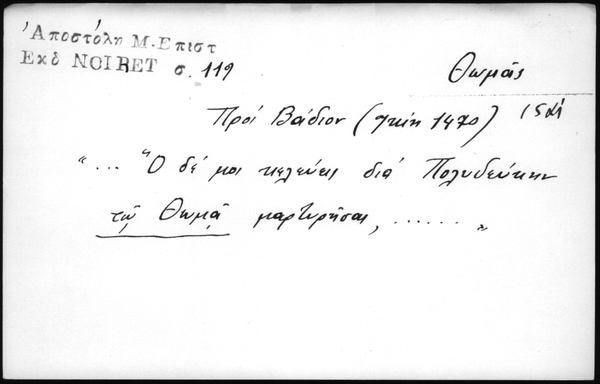 Ἀποστόλη Μ. Επιστ
Εκδ NOIRET σ. 119
Θωμᾶς
Πρός Βάδιον ( 1470) 15
"... Ὁ δέ μοι κελεύεις διά Πολυδεύκην
τῷ Θωμᾷ μαρτυρῆσαι, ...... "